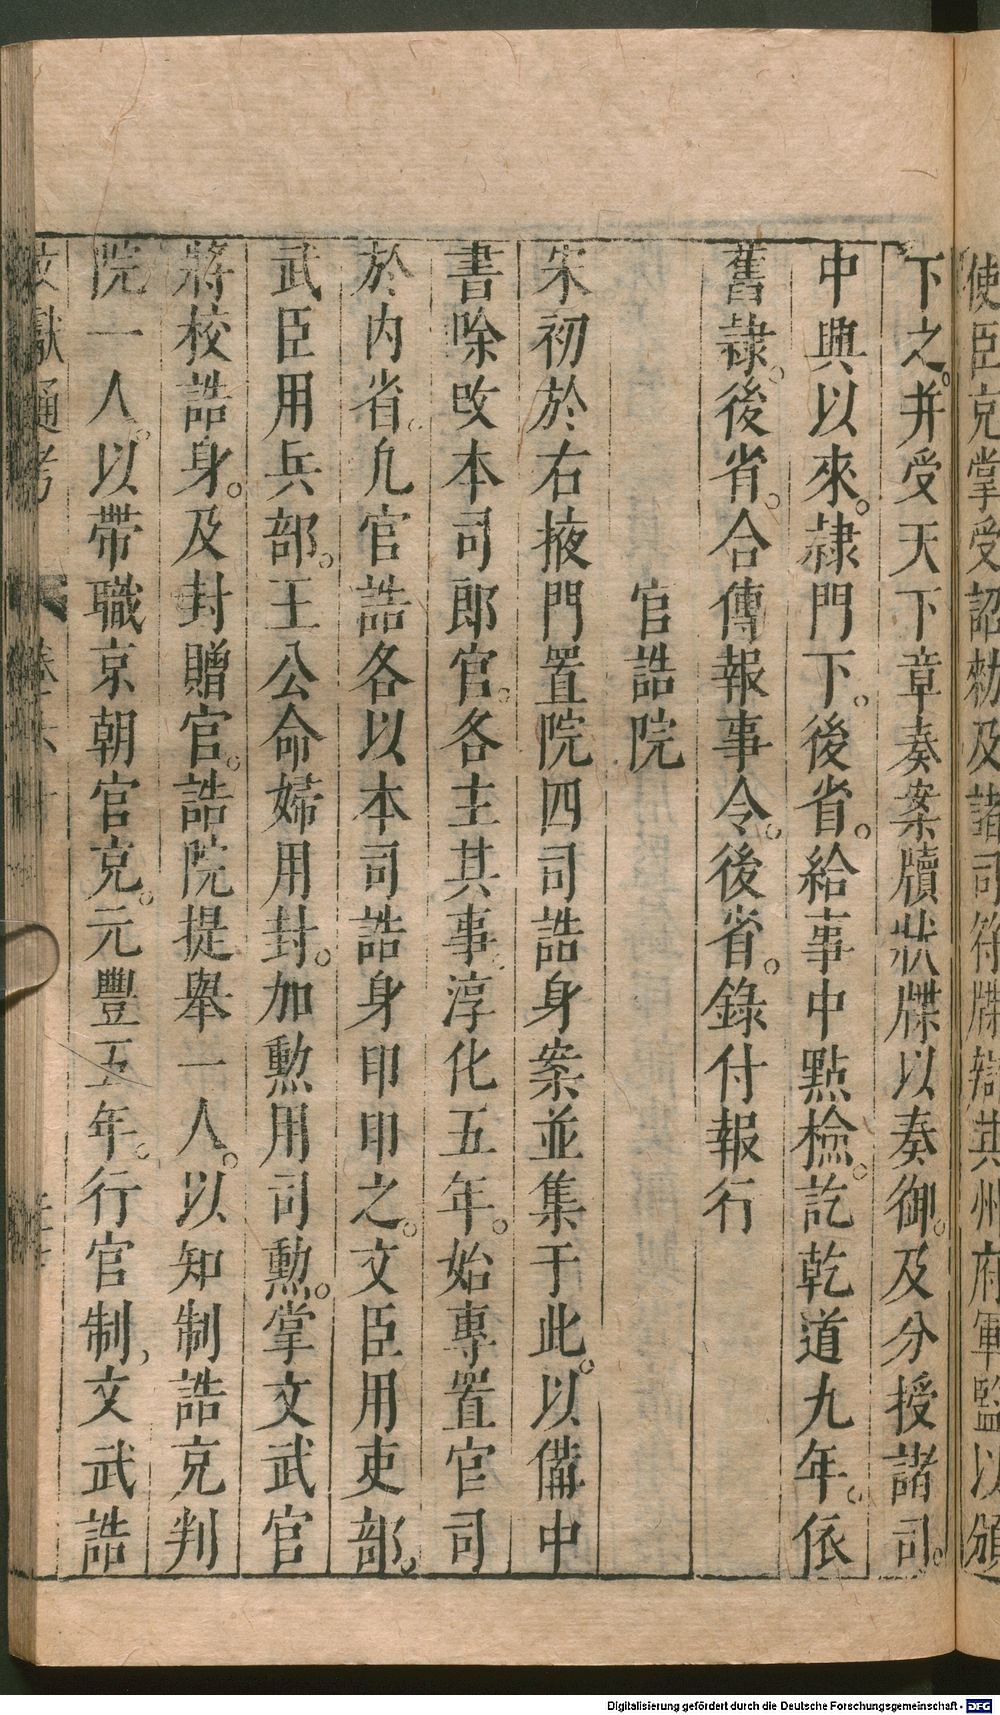 使臣充掌受詔勑及諸司符牒辯其州府軍監以頒
下之。并受天下章奏案牘狀牒以奏御。及分授諸司。
中興以來。隷門下。後省。給事中點檢。訖乾道九年。依
舊隷。後省。合傳報事令。後省。錄付報行
官誥院
宋初於右掖門置院四司誥身案並集于此。以備中
書除改本司郎官。各主其事。淳化五年。始專置官司
於內省。凡官誥各以本司誥身印印之。文臣用吏部。
武臣用兵部。王公命婦用封。加勲用司勲。掌文武官
將校誥身。及封贈官。誥院提舉一人。以知制誥充判
院一人。以帶職京朝官充。元豐五年。行官制，文武誥
文獻通考 卷六十
Digitalisierung gefördert durch die Deutsche Forschungsgemeinschaft - DFG